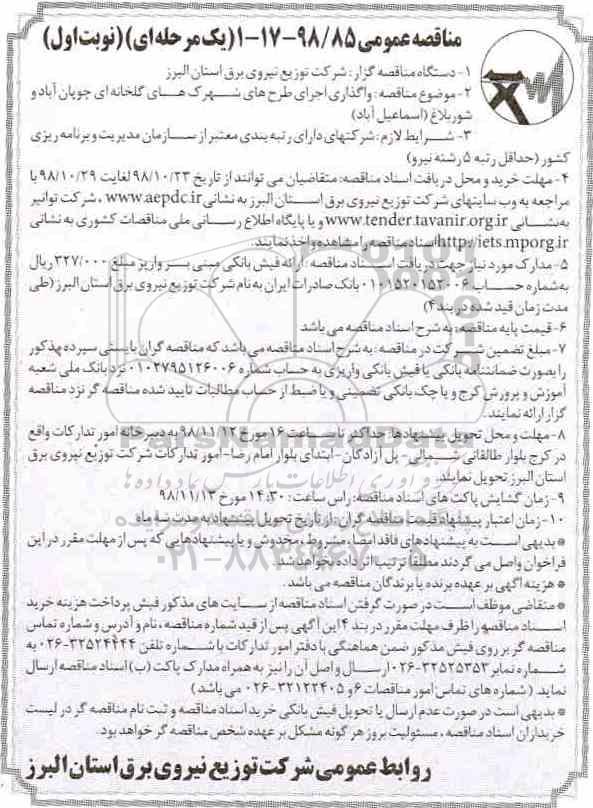 مناقصه عمومی ۹۸/۸۵-۱۷-۱ (یک مرحله ای) (نوبت اول)
۱- دستگاه مناقصه گزار: شرکت توزیع نیروی برق استان البرز
۲- موضوع مناقصه: واگذاری اجرای طرح های شهرک های گلخانه ای چوپان آباد و
شوربلاغ (اسماعیل آباد)
۳- شرایط لازم: شرکتهای دارای رتبه بندی معتبر از سازمان مدیریت و برنامه ریزی
کشور (حداقل رتبه ۵ رشته نیرو)
۴- مهلت خرید و محل دریافت اسناد مناقصه: متقاضیان می توانند از تاریخ ۹۸/۱۰/۲۳ لغایت ۹۸/۱۰/۲۹ با
مراجعه به وب سایتهای شرکت توزیع نیروی برق استان البرز به نشانی www.aepdc.ir ، شرکت توانیر
به نشانی www.tender.tavanir.org.ir و یا پایگاه اطلاع رسانی ملی مناقصات کشوری به نشانی
http://iets.mporg.ir اسناد مناقصه را مشاهده و اخذ نمایند.
۵- مدارک مورد نیاز جهت دریافت اسناد مناقصه: ارائه فیش بانکی مبنی بر واریز مبلغ ۳۲۷/۰۰۰ ریال
به شماره حساب ۰۱۰۱۵۲۰۱۵۲۰۰۶ بانک صادرات ایران به نام شرکت توزیع نیروی برق استان البرز (طی
مدت زمان قید شده در بند ۴)
۶- قیمت پایه مناقصه: به شرح اسناد مناقصه می باشد
۷- مبلغ تضمین شرکت در مناقصه: به شرح اسناد مناقصه می باشد که مناقصه گران بایستی سپرده مذکور
را بصورت ضمانتنامه بانکی یا فیش بانکی واریزی به حساب شماره ۰۱۰۲۷۹۵۱۲۶۰۰۶ نزد بانک ملی شعبه
آموزش و پرورش کرج و یا چک بانکی تضمینی و یا ضبط از حساب مطالبات تایید شده مناقصه گر نزد مناقصه
گزار ارائه نمایند.
۸- مهلت و محل تحویل پیشنهادها: حداکثر تا ساعت ۱۶ مورخ ۹۸/۱۱/۱۲ به دبیرخانه امور تدارکات واقع
در کرج بلوار طالقانی شمالی- پل آزادگان- ابتدای بلوار امام رضا- امور تدارکات شرکت توزیع نیروی برق
استان البرز تحویل نمایند.
۹- زمان گشایش پاکت های اسناد مناقصه: راس ساعت: ۱۴:۳۰ مورخ ۹۸/۱۱/۱۳
۱۰- زمان اعتبار پیشنهاد قیمت مناقصه گران: از تاریخ تحویل پیشنهاد به مدت سه ماه
* بدیهی است به پیشنهادهای فاقد امضا، مشروط، مخدوش و یا پیشنهادهایی که پس از مهلت مقرر در این
فراخوان واصل می گردند مطلقا ترتیب اثر داده نخواهد شد.
* هزینه آگهی بر عهده برنده یا برندگان مناقصه می باشد.
* متقاضی موظف است در صورت گرفتن اسناد مناقصه از سایت های مذکور فیش پرداخت هزینه خرید
اسناد مناقصه را ظرف مهلت مقرر در بند ۴ این آگهی پس از قید شماره مناقصه، نام و آدرس و شماره تماس
مناقصه گر بر روی فیش مذکور ضمن هماهنگی با دفتر امور تدارکات با شماره تلفن ۳۲۵۲۴۴۴۴-۰۲۶ به
شماره نمابر ۳۲۵۲۵۳۵۳-۰۲۶ ارسال و اصل آن را نیز به همراه مدارک پاکت (ب) اسناد مناقصه ارسال
نماید. (شماره های تماس امور مناقصات ۶ و ۳۲۱۲۲۴۰۵-۰۲۶ می باشد)
* بدیهی است در صورت عدم ارسال یا تحویل فیش بانکی خرید اسناد مناقصه و ثبت نام مناقصه گر در لیست
خریداران اسناد مناقصه، مسئولیت بروز هر گونه مشکل بر عهده شخص مناقصه گر خواهد بود.
روابط عمومی شرکت توزیع نیروی برق استان البرز